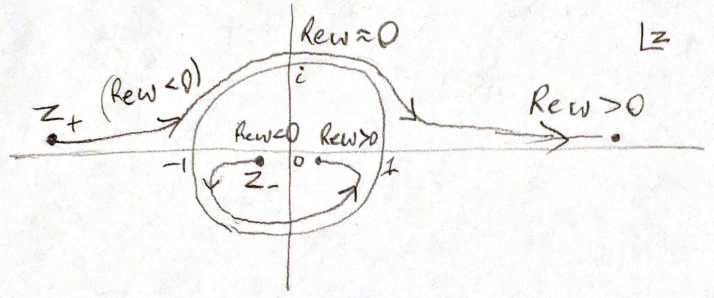 Re w ≈ 0
z
(Re w < 0)
Re w > 0
z₊
i
Re w < 0
Re w > 0
-1
0
1
z₋